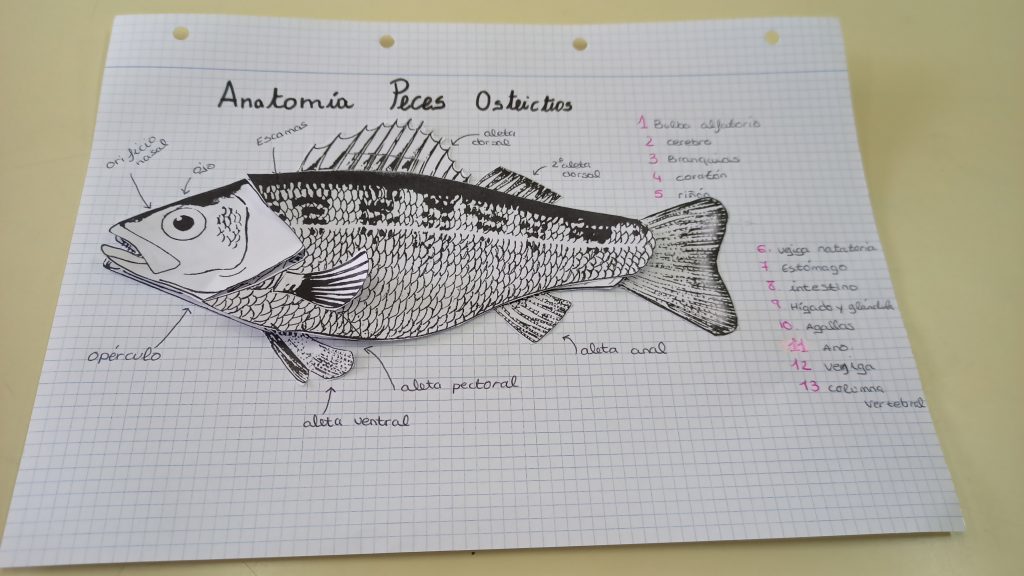 Anatomía Peces Osteictios
orificio
nasal
ojo
Escamas
aleta
dorsal
2ª aleta
dorsal
opérculo
aleta ventral
aleta pectoral
aleta anal
1 Bulbo olfatorio
2 cerebro
3 Branquias
4 corazón
5 riñón
6. vejiga natatoria
7 Estómago
8 intestino
9 Hígado y
10 Agallas
11 Ano.
12 Vejiga
13 columna
vertebral